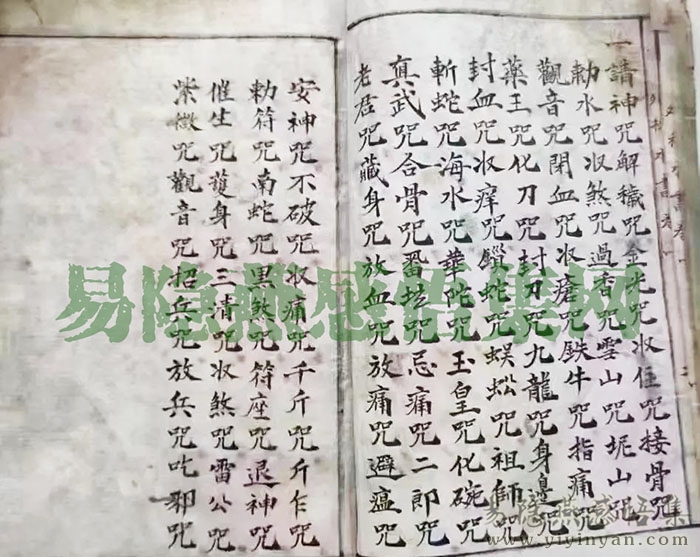 請神咒解穢咒金光咒収住咒接骨咒
勅水咒収煞咒過香咒雪山咒坭山咒
觀音咒閉血咒収瘡咒鉄牛咒指痛咒
藥王咒化刀咒封刀咒九龍咒身邊咒
封血咒収痒咒鎖蛇咒蜈蚣咒祖師咒
斬蛇咒海水咒華陀咒玉皇咒化碗咒
真武咒合骨咒番坛咒忌痛咒二郎咒
老君咒藏身咒放血咒放痛咒避瘟咒
安神咒不破咒収痛咒千斤咒斤乍咒
勅符咒南蛇咒黒煞咒符座咒退神咒
催生咒護身咒三清咒収煞咒雷公咒
紫微咒觀音咒招兵咒放兵咒叱邪咒
易隐燕感悟集网
易隐燕感悟集
www.yiyinyan.com